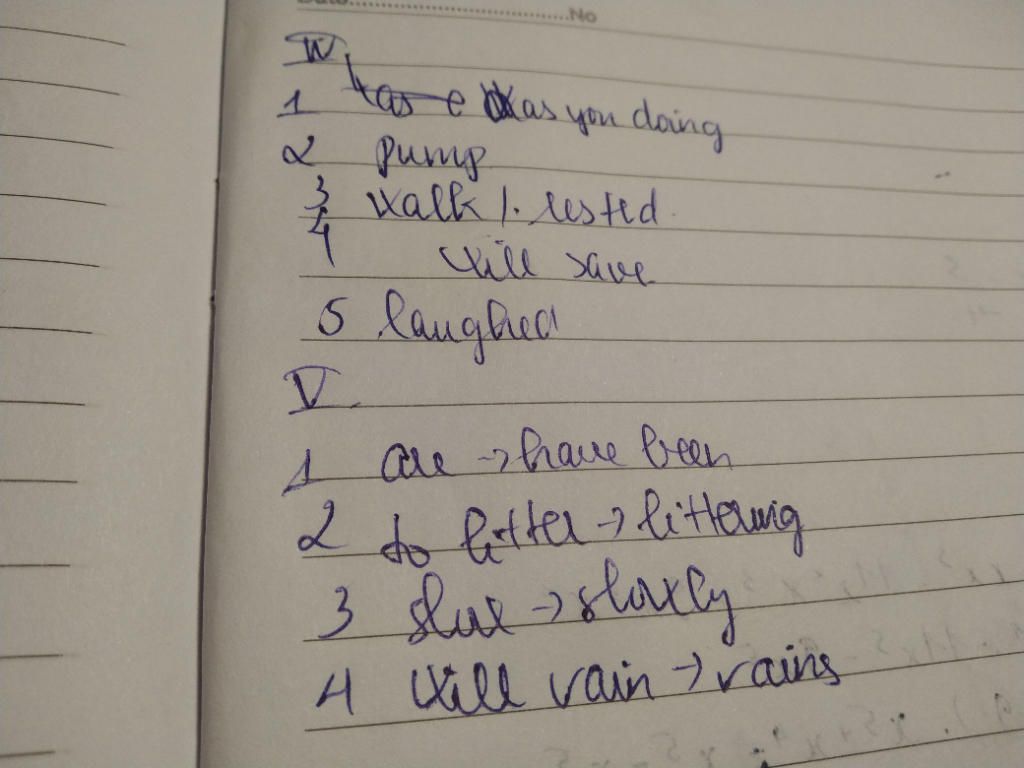 No
IV
1 was you doing
2 pump
3 walk / rested
4 will save
5 laughed
V
1 are → have been
2 to litter → littering
3 slow → slowly
4 will rain → rains